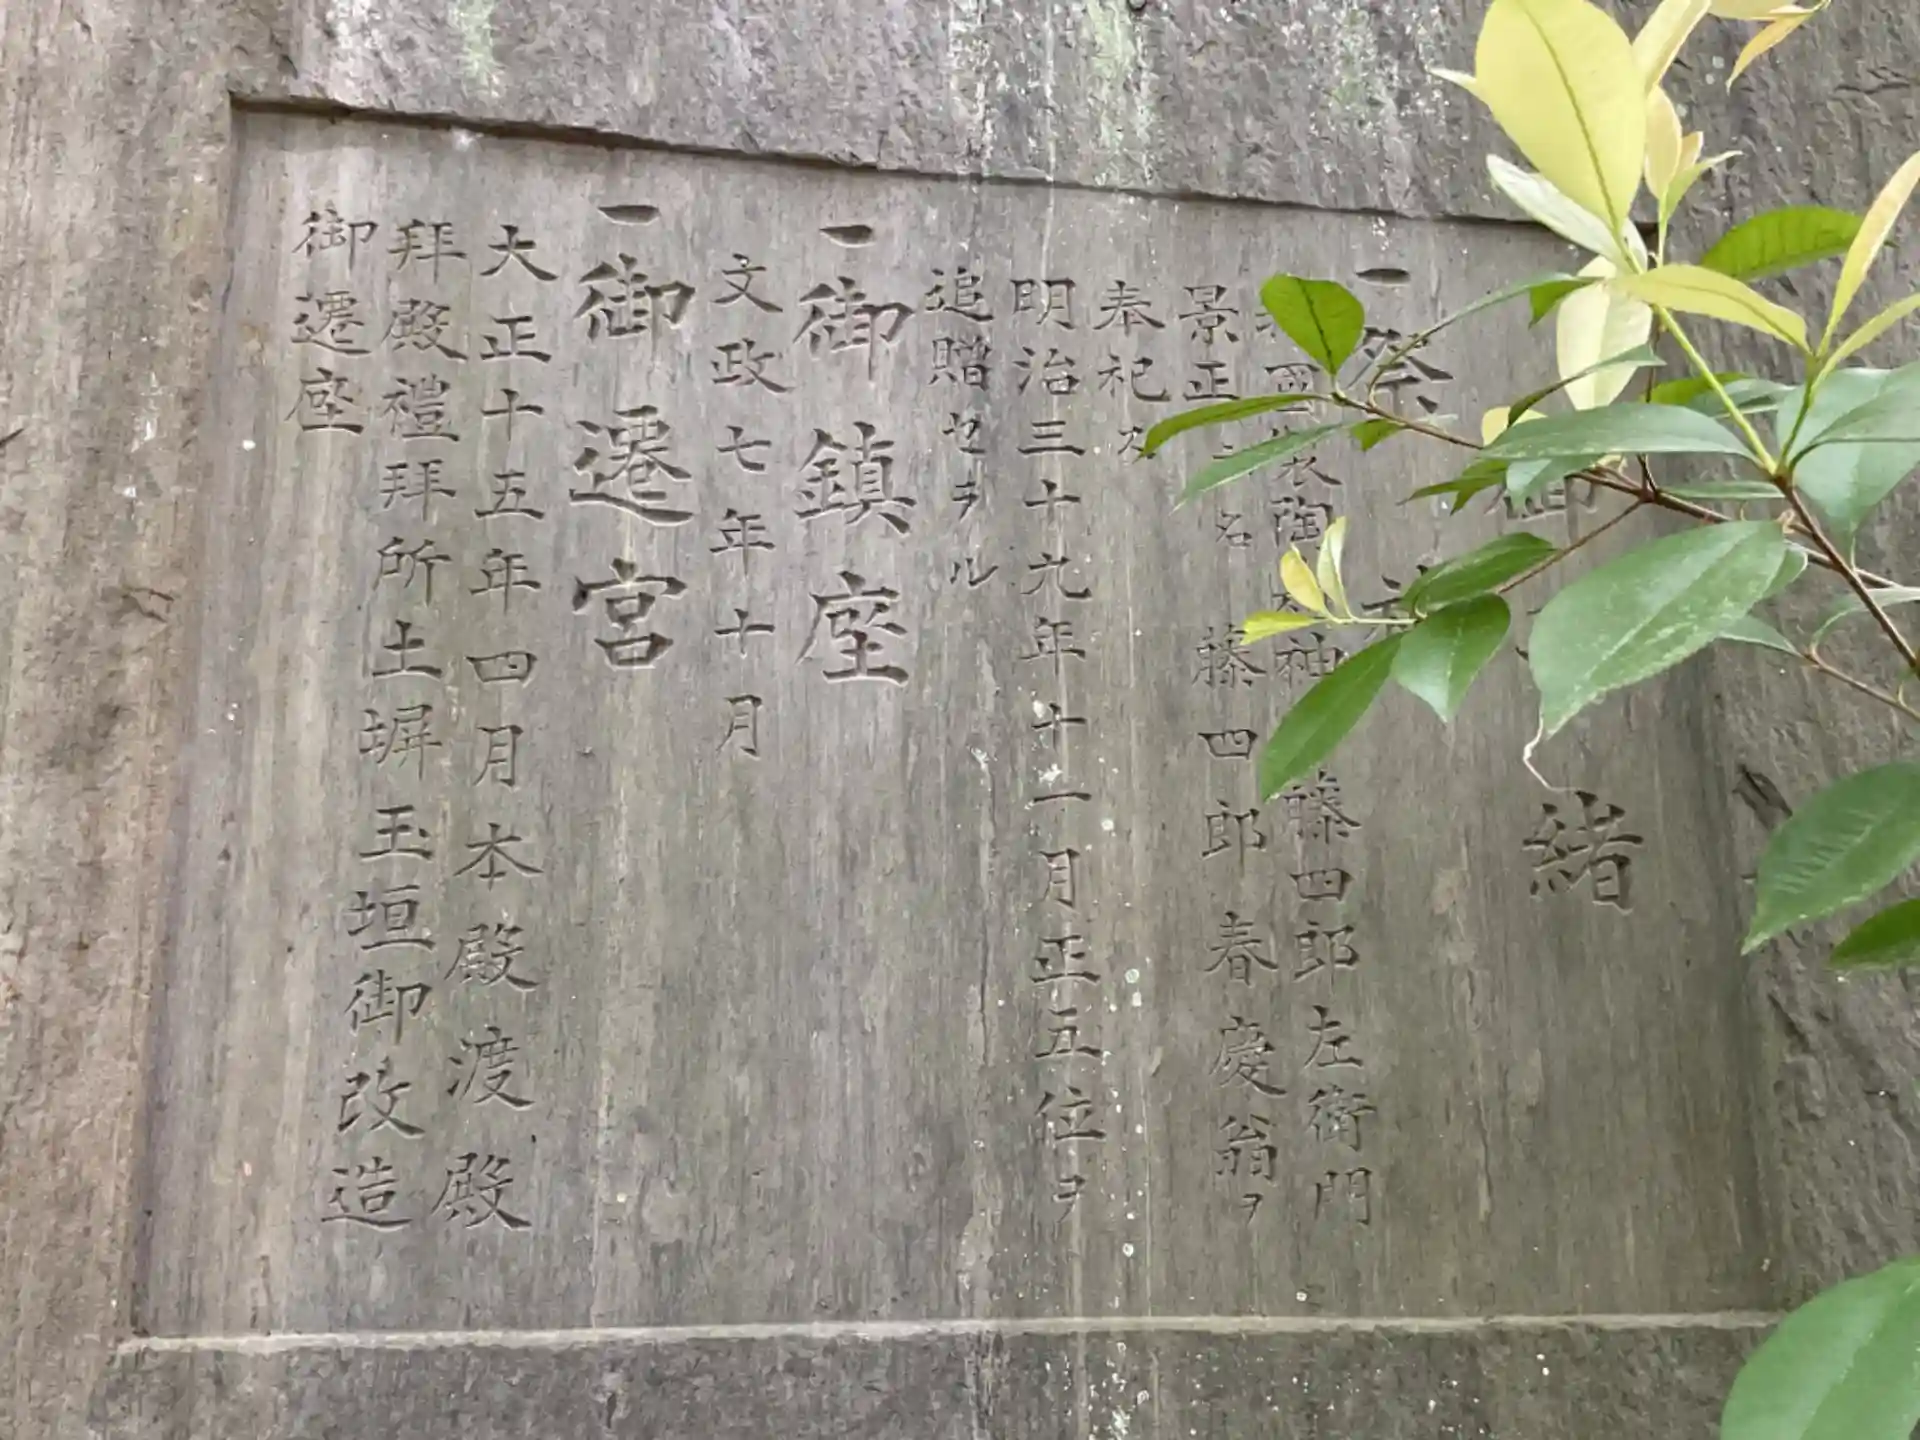 御 緒
一祭
國 陶 神 藤四郎左衛門
景正 名 藤四郎春慶翁ヲ
奉祀ス
明治三十九年十一月正五位ヲ
追贈セラル
一御鎮座
文政七年十月
一御遷宮
大正十五年四月本殿渡殿
拜殿禮拜所土塀玉垣御改造
御遷座